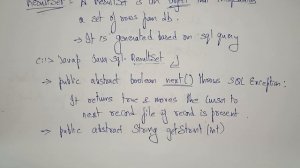 Resultset : A Resultset is an object that
a set of rows from db.
→ It is generated based on sql query
c:\> javap java.sql.Resultset ↲
→ public abstract boolean next() throws SQL Exception:
It returns true & moves the cursor to
next record if record is present.
→ public abstract String getString(int)